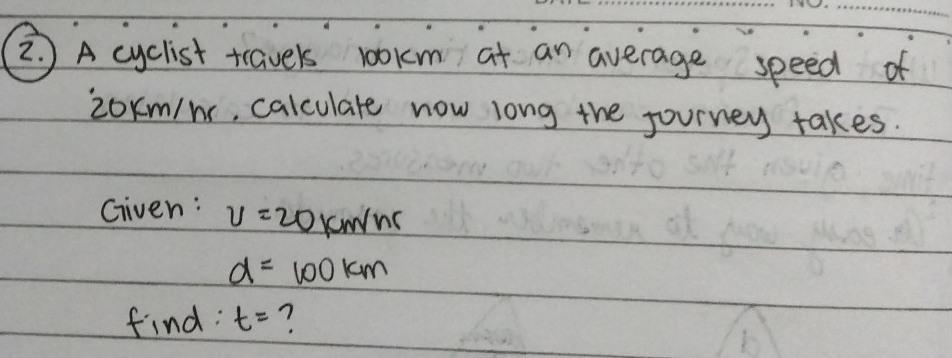 2. A cyclist travels 100km at an average speed of
20km/hr. Calculate how long the journey takes.
Given: v = 20 km/hr
d = 100 km
find : t = ?